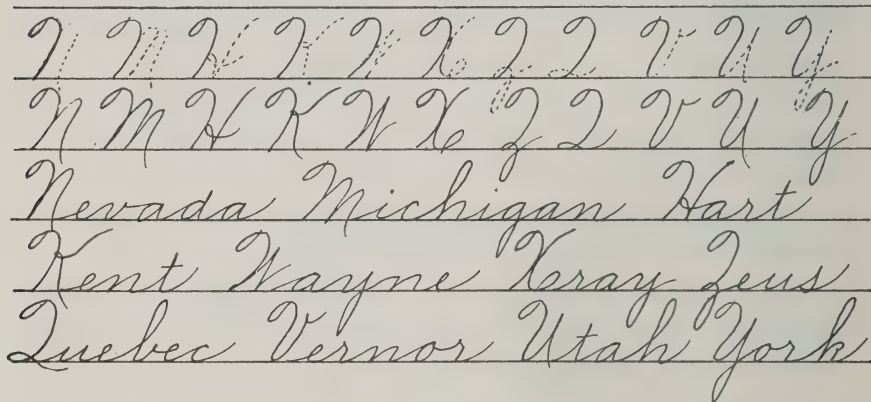 N M H K W X Z Q V U Y
N M H K W X Z Q V U Y
Nevada Michigan Hart
Kent Wayne Xray Zeus
Quebec Vernor Utah York